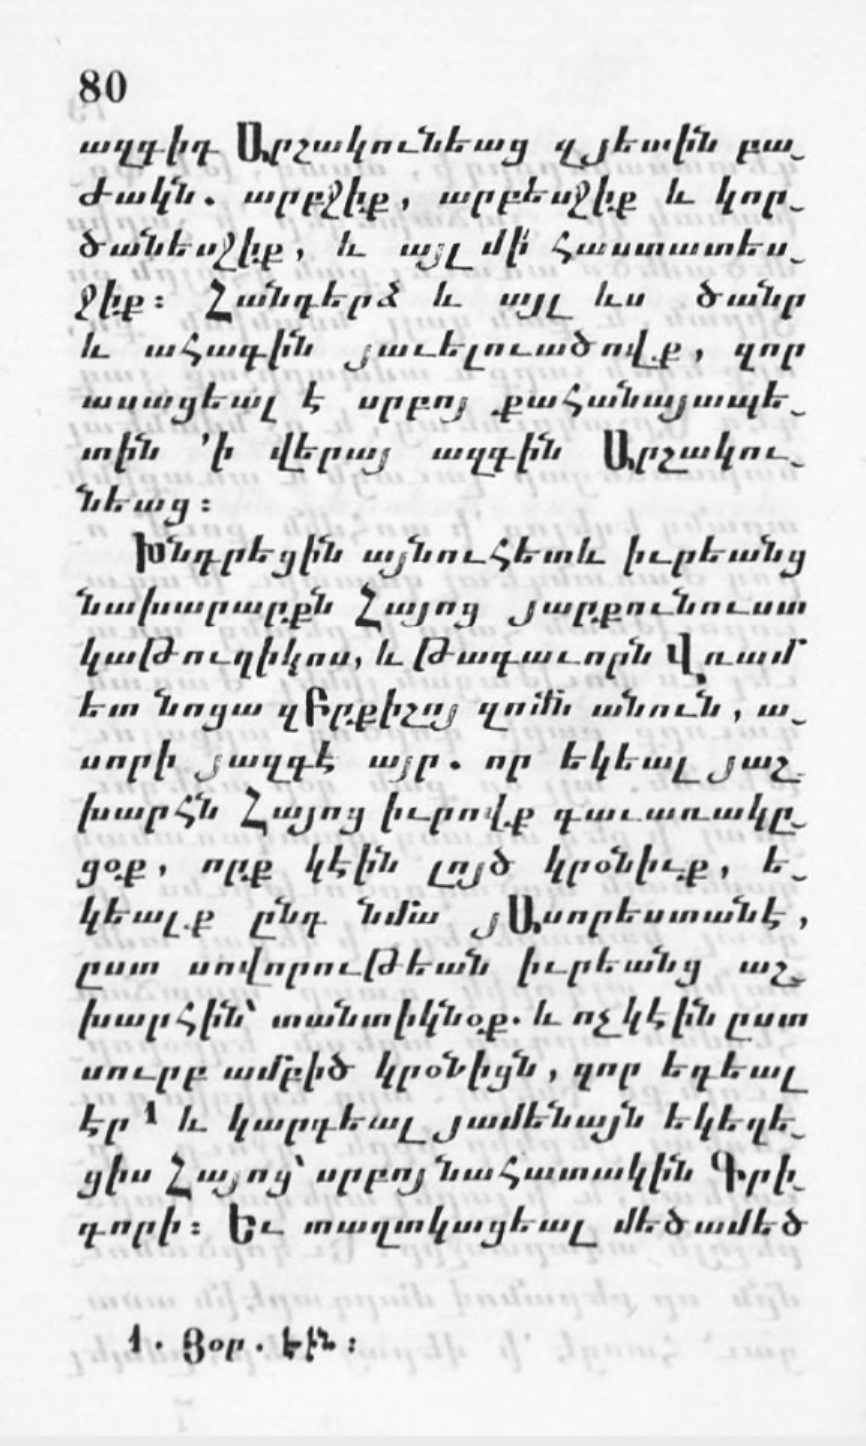 80
ազգիդ Արշակունեաց զյետին բա֊
ժակն. արբջիք, արբեսջիք և կոր֊
ծանեսջիք, և այլ մի՛ հաստատես֊
ջիք։ Հանդերձ և այլ ևս ծանր
և ահագին յաւելուածովք, զոր
ասացեալ է սրբոյ քահանայապե֊
տին ՚ի վերայ ազգին Արշակու֊
նեաց։
Խնդրեցին այնուհետև իւրեանց
նախարարքն Հայոց յարքունուստ
կաթուղիկոս, և թագաւորն Վռամ
ետ նոցա զԲրքիշոյ զոմն անուն, ա֊
սորի յազգէ այր. որ եկեալ յաշ֊
խարհն Հայոց իւրովք գաւառակը֊
ցօք, որք կէին լոյծ կրօնիւք, ե֊
կեալք ընդ նմա յԱսորեստանէ,
ըստ սովորութեան իւրեանց աշ֊
խարհին՝ տանտիկնօք. և ոչ կէին ըստ
սուրբ ամբիծ կրօնիցն, զոր եդեալ
էր 1 և կարգեալ յամենայն եկեղե֊
ցիս Հայոց՝ սրբոյ նահատակին Գրի֊
գորի։ Եւ տաղտկացեալ մեծամեծ
1. Յօր. էին։